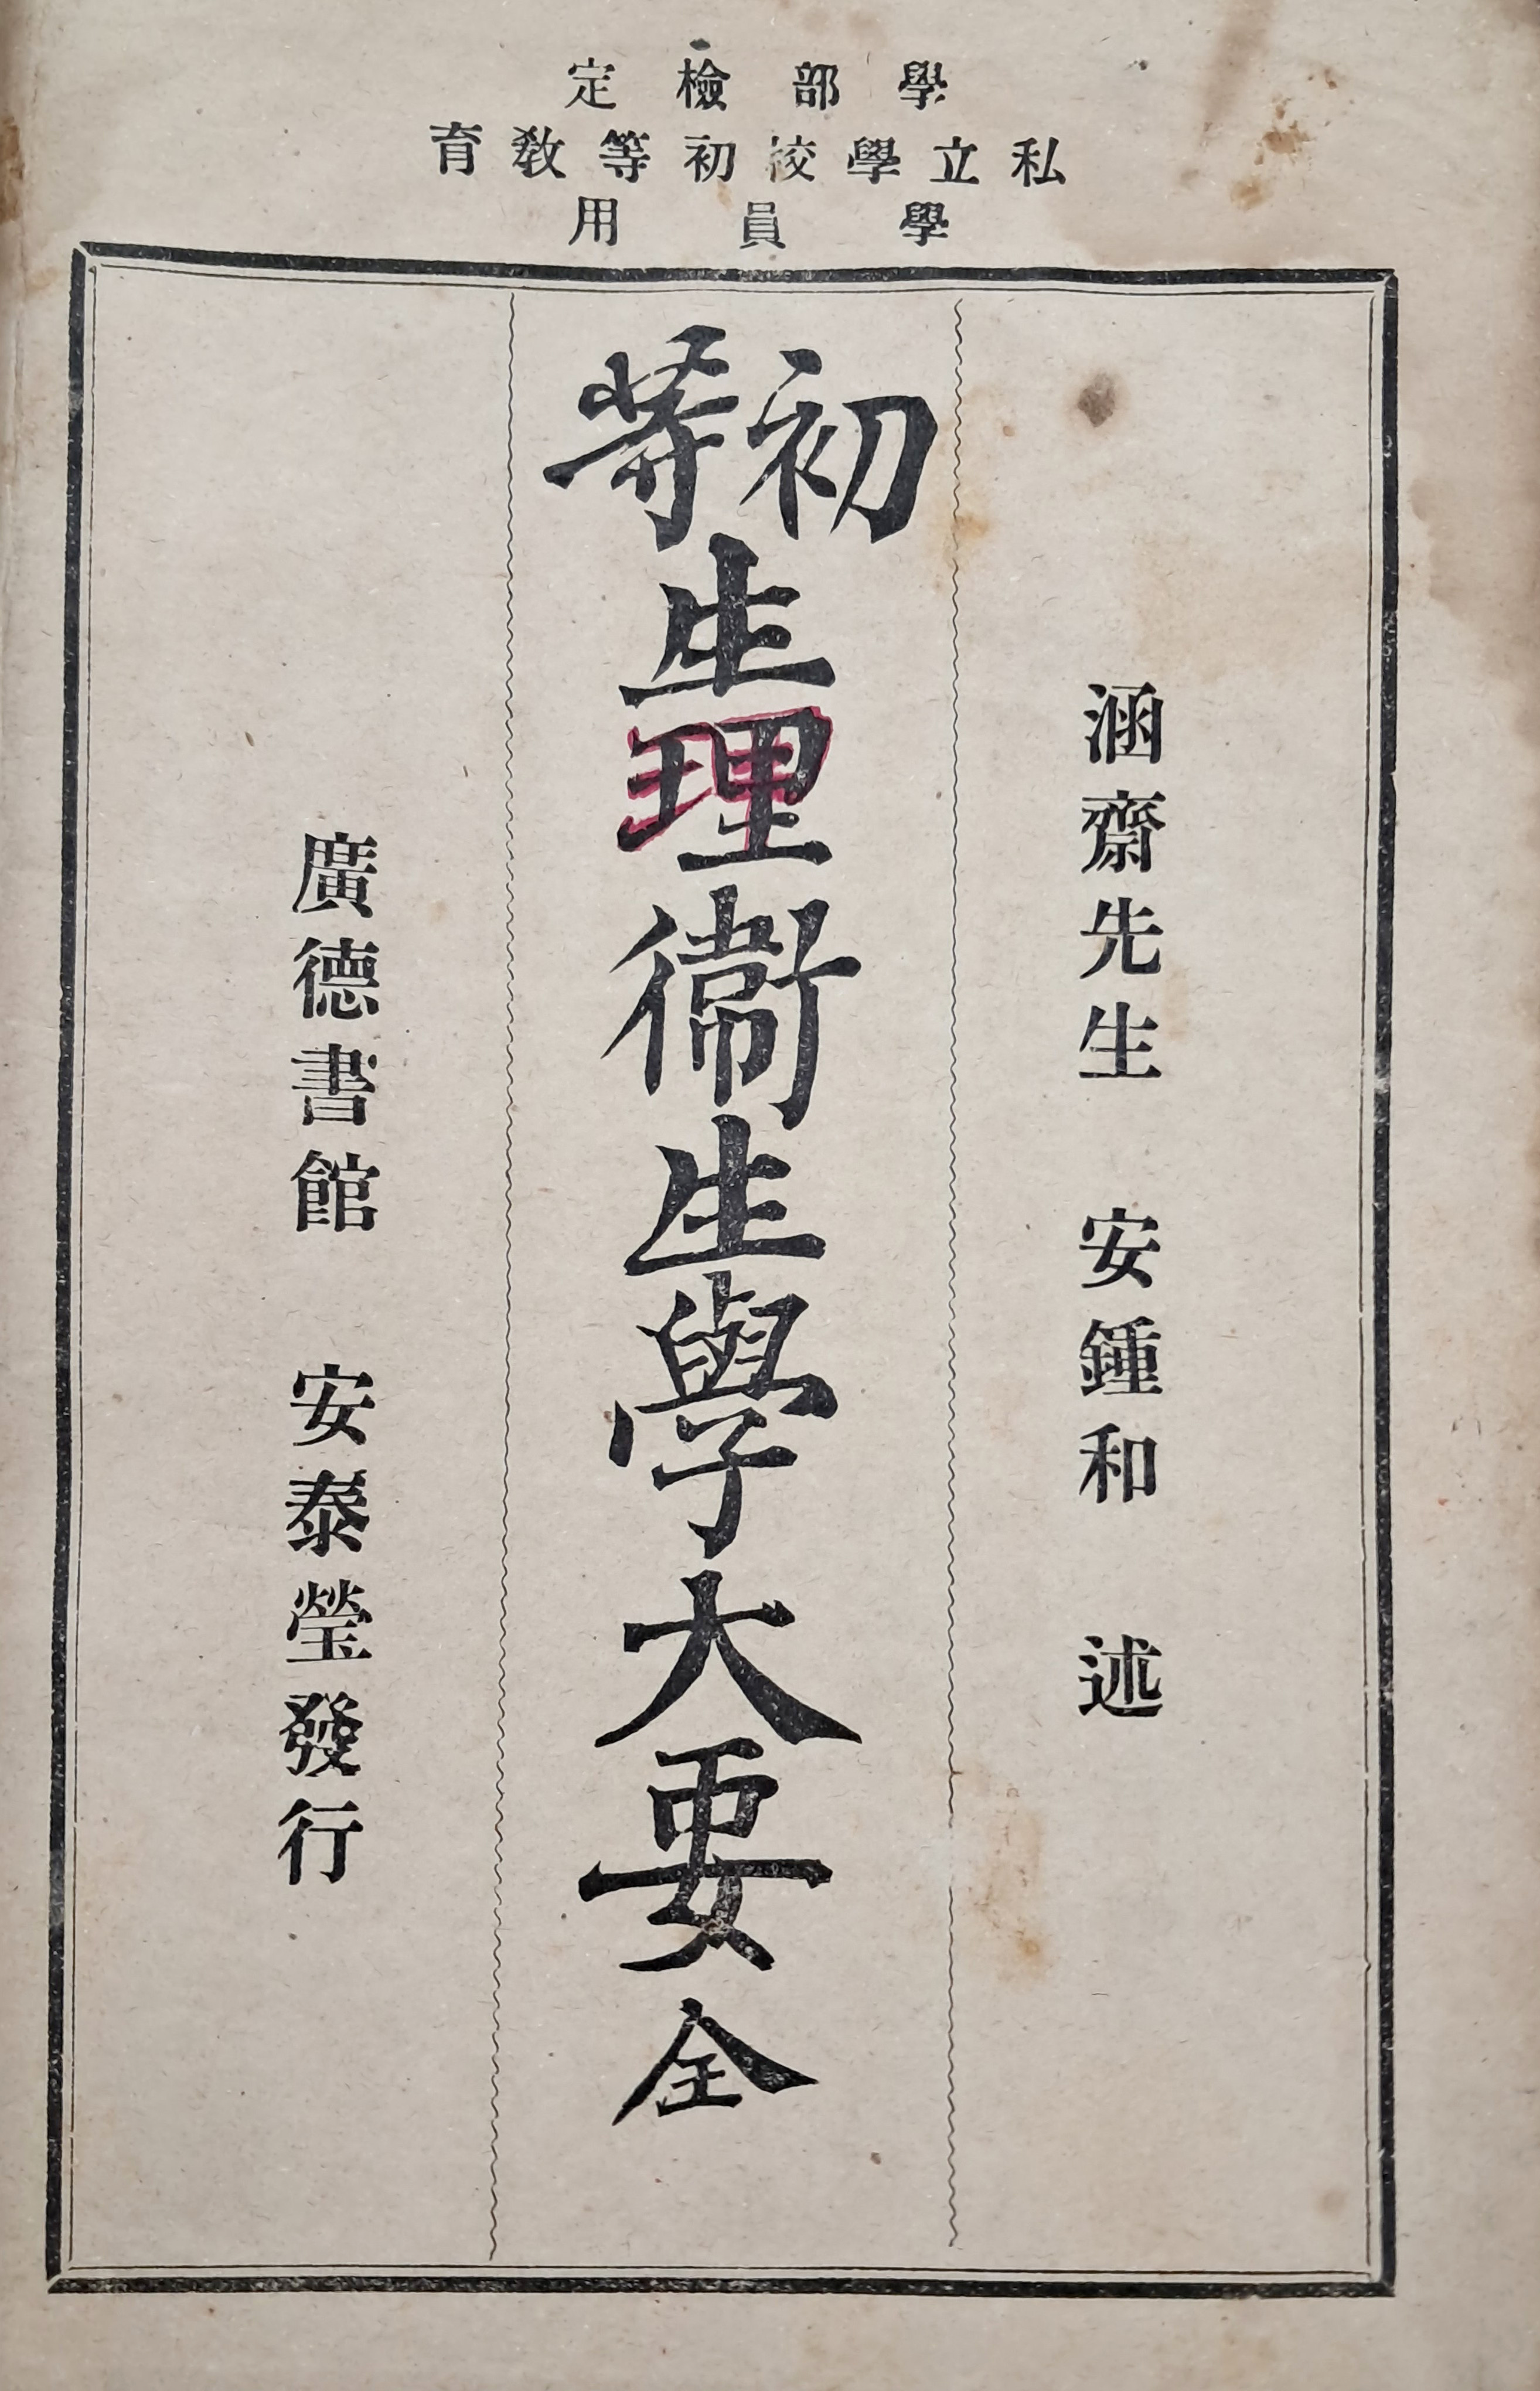 學部檢定
私立學校初等敎育
學員用
涵齋先生 安鍾和 述
初等生理衛生學大要 全
廣德書館 安泰瑩發行